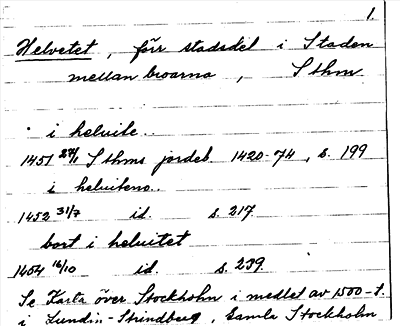 1.
Helvetet, förr stadsdel i Staden
mellan broarna, Sthm
i heluite..
1451 27/1 Sthms jordeb. 1420-74, s. 199
i heluiteno..
1452 31/7 id. s. 217.
bort i heluitet
1454 16/10 id. s. 239.
Se Karta över Stockholm i medlet av 1500-t.
i Lundin-Strindberg, Gamla Stockholm